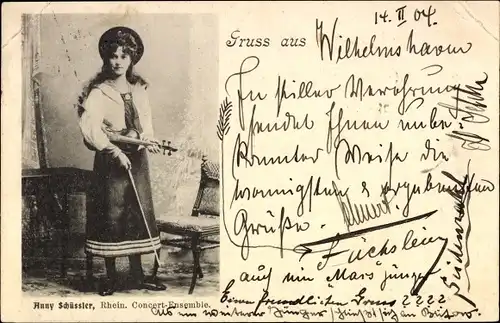 14. II 04.
Gruss aus Wilhelmshaven
In stiller Verehrung
sendet Ihnen unbe-
kannter Weise die
wonnigsten & ergebensten
Grüße.
Füchslein
auch ein Mars jünger
Einen freundlichen Gruss 2222
Als ein weiterer Jünger
Anny Schüssler, Rhein. Concert-Ensemble.